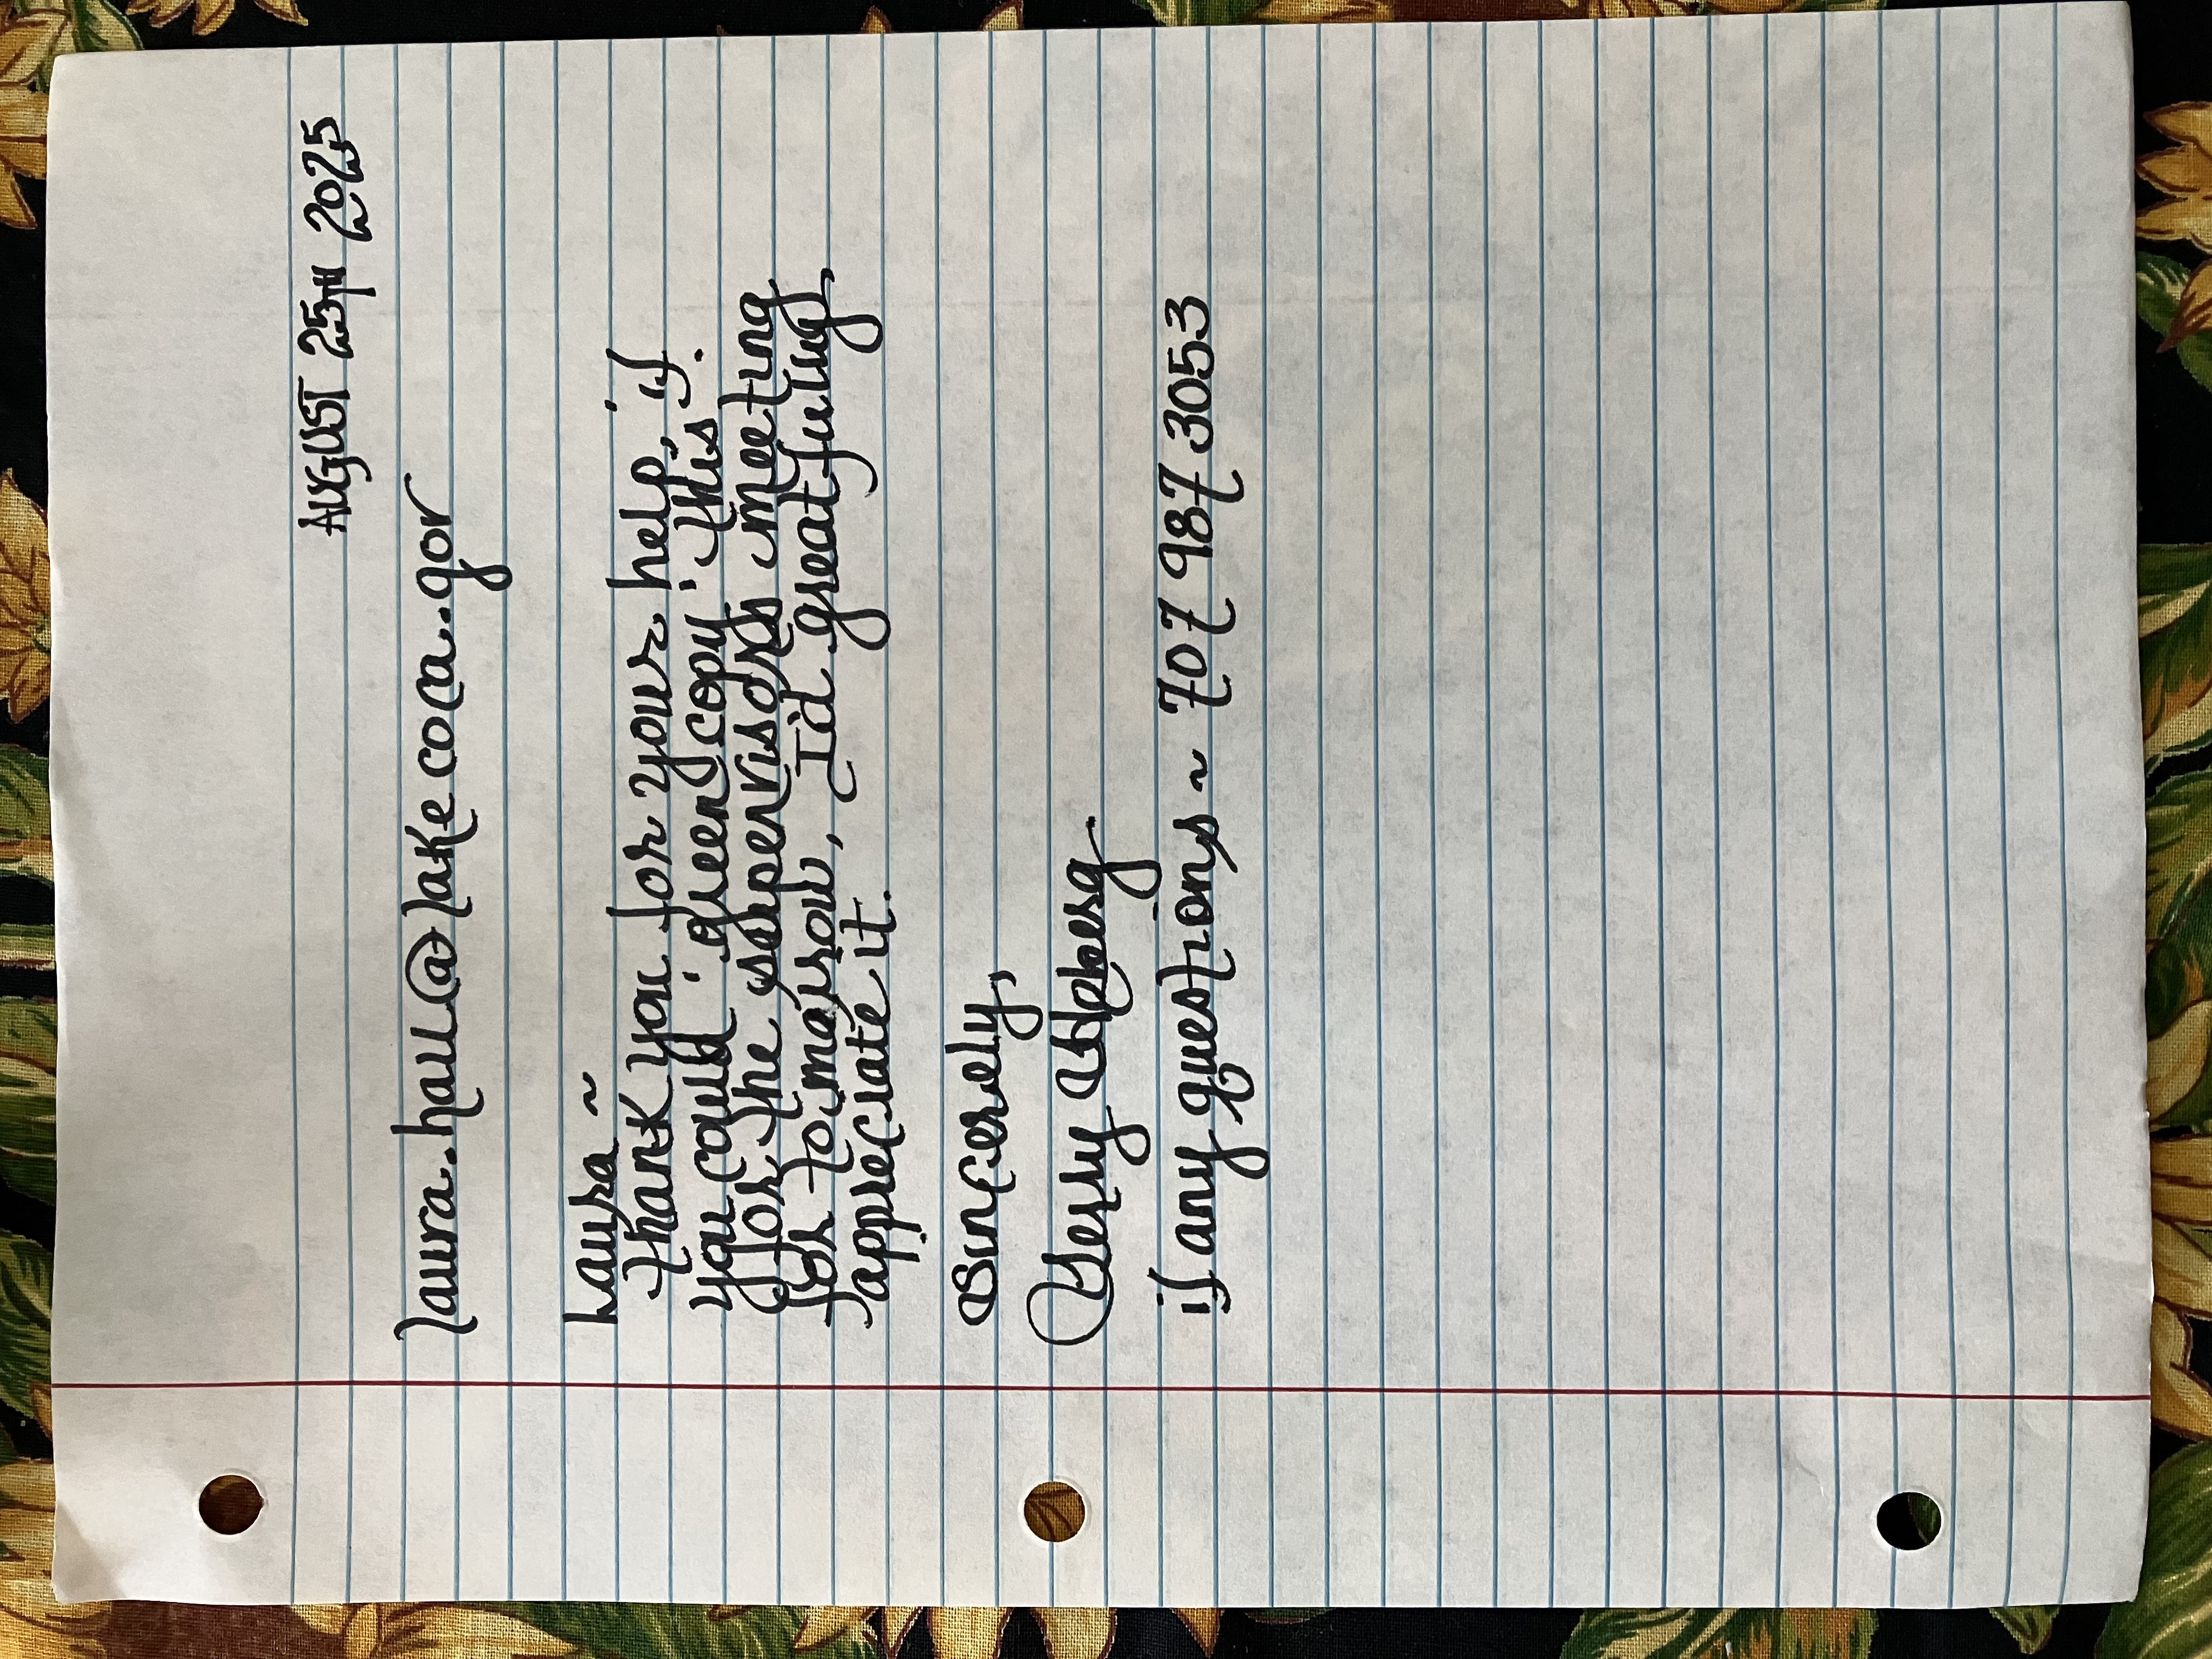 AUGUST 25TH 2025
laura.hall@lakecoca.gov
Laura ~
Thank you for your help, if
you could 'green copy' this
for the supervisors meeting
for tomarrow, I'd greatfully
appreciate it.
Sincerely,
if any questions ~ 707 987 3053